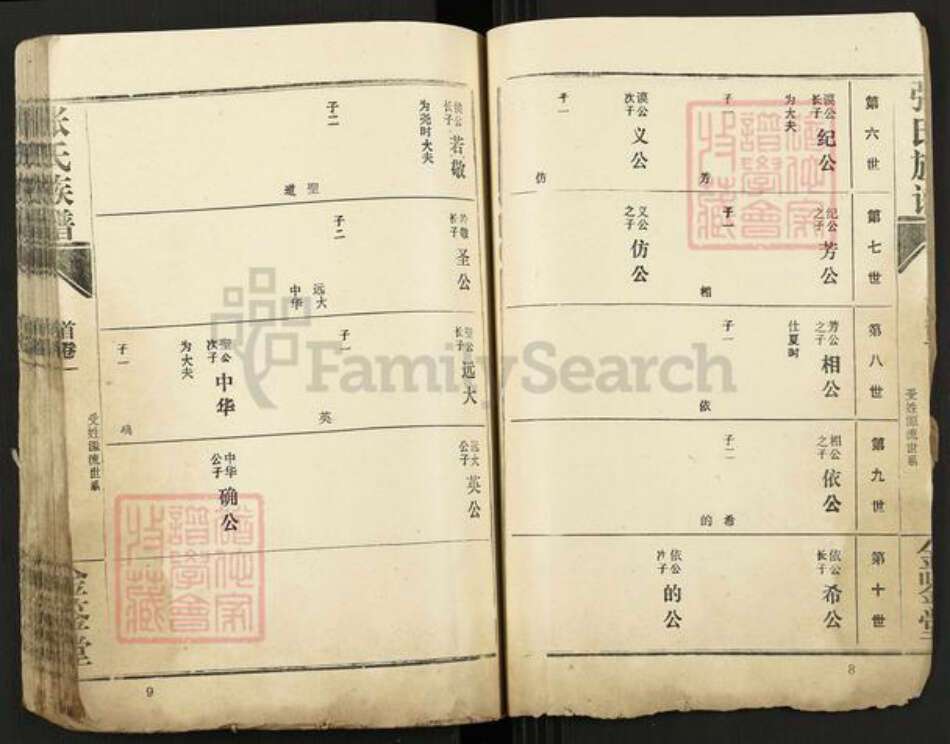 张氏族谱
受姓源流世系
金鉴堂
第六世
漠公长子
纪公
为大夫
子一
芳
漠公次子
义公
子一
仿
第七世
纪公之子
芳公
子一
相
义公之子
仿公
第八世
芳公之子
相公
仕夏时
子一
依
第九世
相公之子
依公
子二
希
的
第十世
依公长子
希公
依公次子
的公
8
若敬
为尧时大夫
子二
聖
道
若敬长子
圣公
子二
远大
中华
聖公长子
远大
子一
英
聖公次子
中华
为大夫
子一
确
远大公子
英公
中华公子
确公
张氏族谱
首卷一
受姓源流世系
金鉴堂
9
FamilySearch